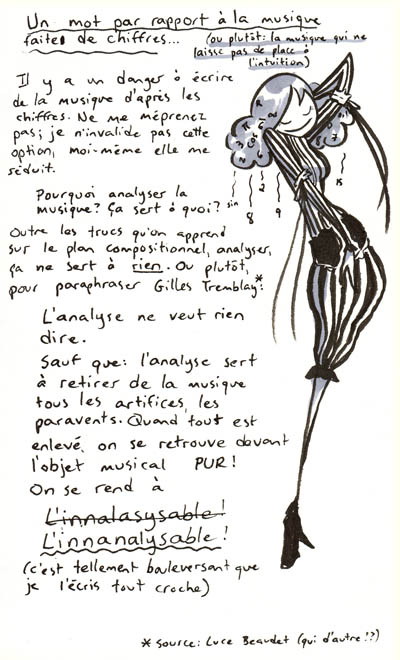 Un mot par rapport à la musique
faites de chiffres... (ou plutôt: la musique qui ne
laisse pas de place à
l'intuition)
Il y a un danger à écrire
de la musique d'après les
chiffres. Ne me méprenez
pas; je n'invalide pas cette
option, moi-même elle me
séduit.
Pourquoi analyser la
musique? Ça sert à quoi?
Outre les trucs qu'on apprend
sur le plan compositionnel, analyser,
ça ne sert à rien. Ou plutôt,
pour paraphraser Gilles Tremblay*:
L'analyse ne veut rien
dire.
Sauf que: l'analyse sert
à retirer de la musique
tous les artifices, les
paravents. Quand tout est
enlevé, on se retrouve devant
l'objet musical PUR!
On se rend à
L'innalasysable!
L'innanalysable!
(c'est tellement bouleversant que
je l'écris tout croche)
sin
8
2
9
15
* source: Luce Beaudet (qui d'autre!?)